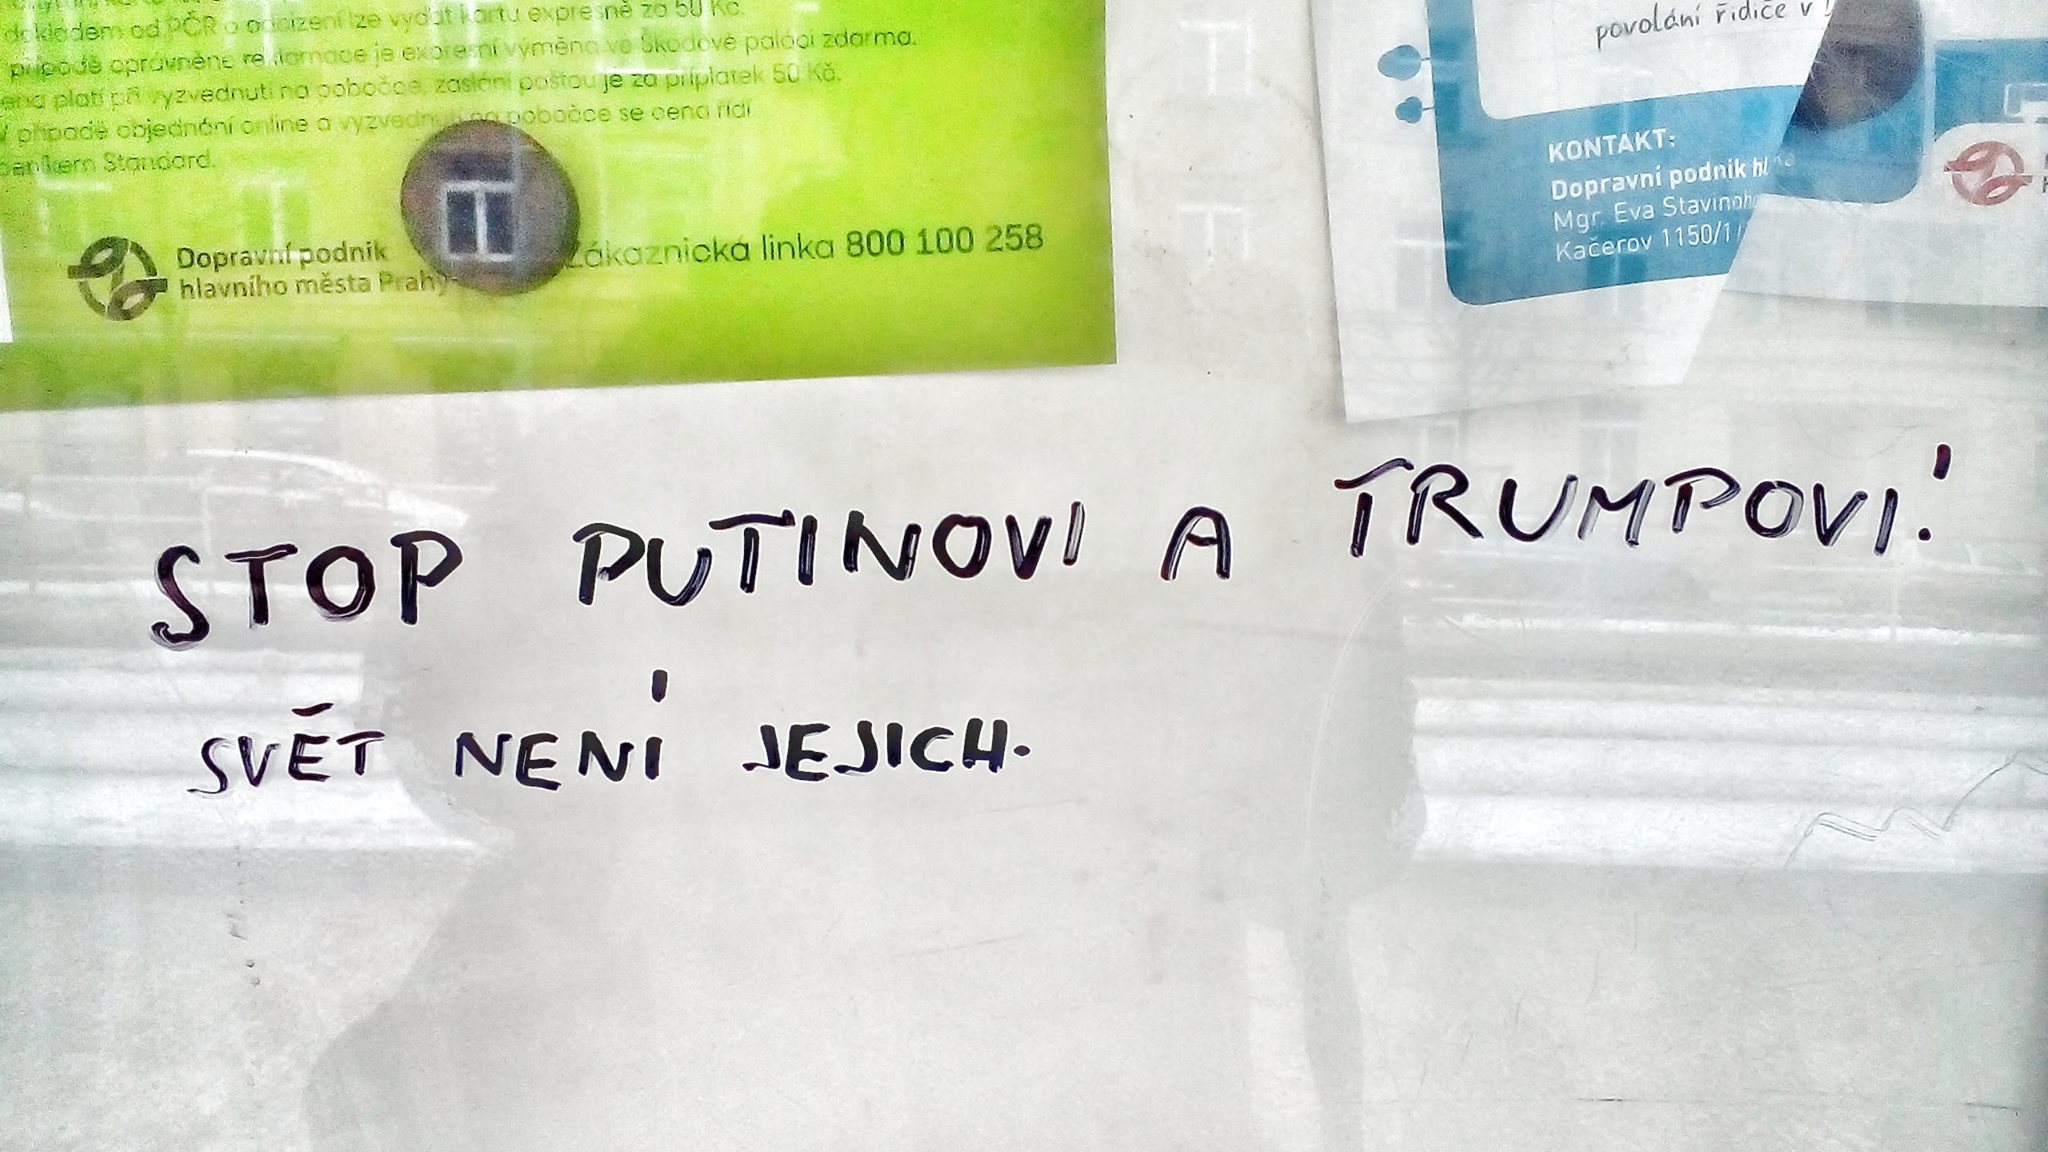 dokladem od PČR o odcizení lze vydat kartu expresně za 50 Kč.
případě oprávněné reklamace je expresní výměna ve Škodově paláci zdarma.
platí při vyzvednutí na pobočce, zaslání poštou je za příplatek 50 Kč.
V případě objednání online a vyzvednutí na pobočce se cena řídí
Standard.
Dopravní podnik
hlavního města Prahy
Zákaznická linka 800 100 258
povolání řidiče v
KONTAKT:
Dopravní podnik hl
Mgr. Eva Stavinoh
Kačerov 1150/1
STOP PUTINOVI A TRUMPOVI!
SVĚT NENÍ JEJICH.